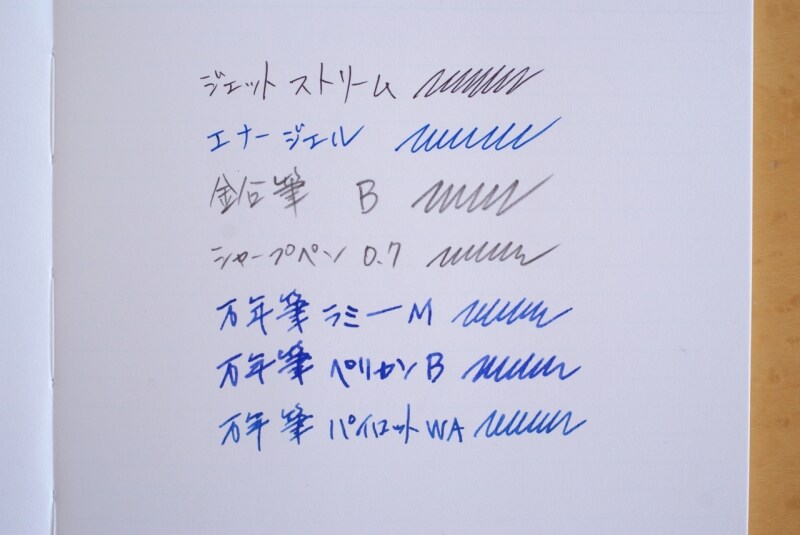 ジェットストリーム
エナージェル
鉛筆 B
シャープペン 0.7
万年筆 ラミー M
万年筆 ペリカン B
万年筆 パイロット WA